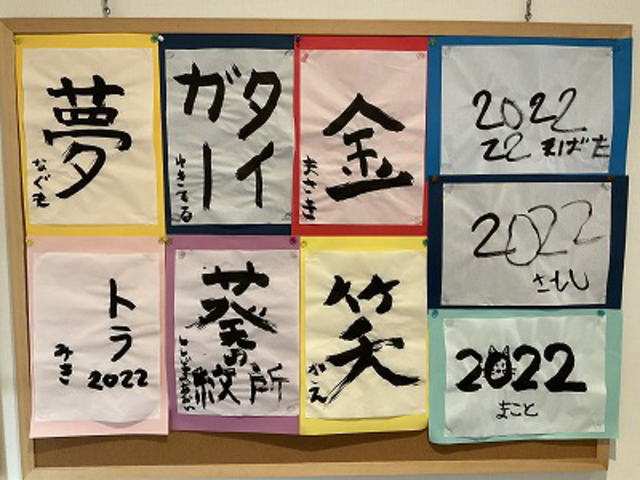 夢
なぐも
タイ
ガー
ゆきてる
金
まさき
2022
22 まばた
2022
さとし
トラ
2022
みき
葵の
紋所
笑
2022
まこと